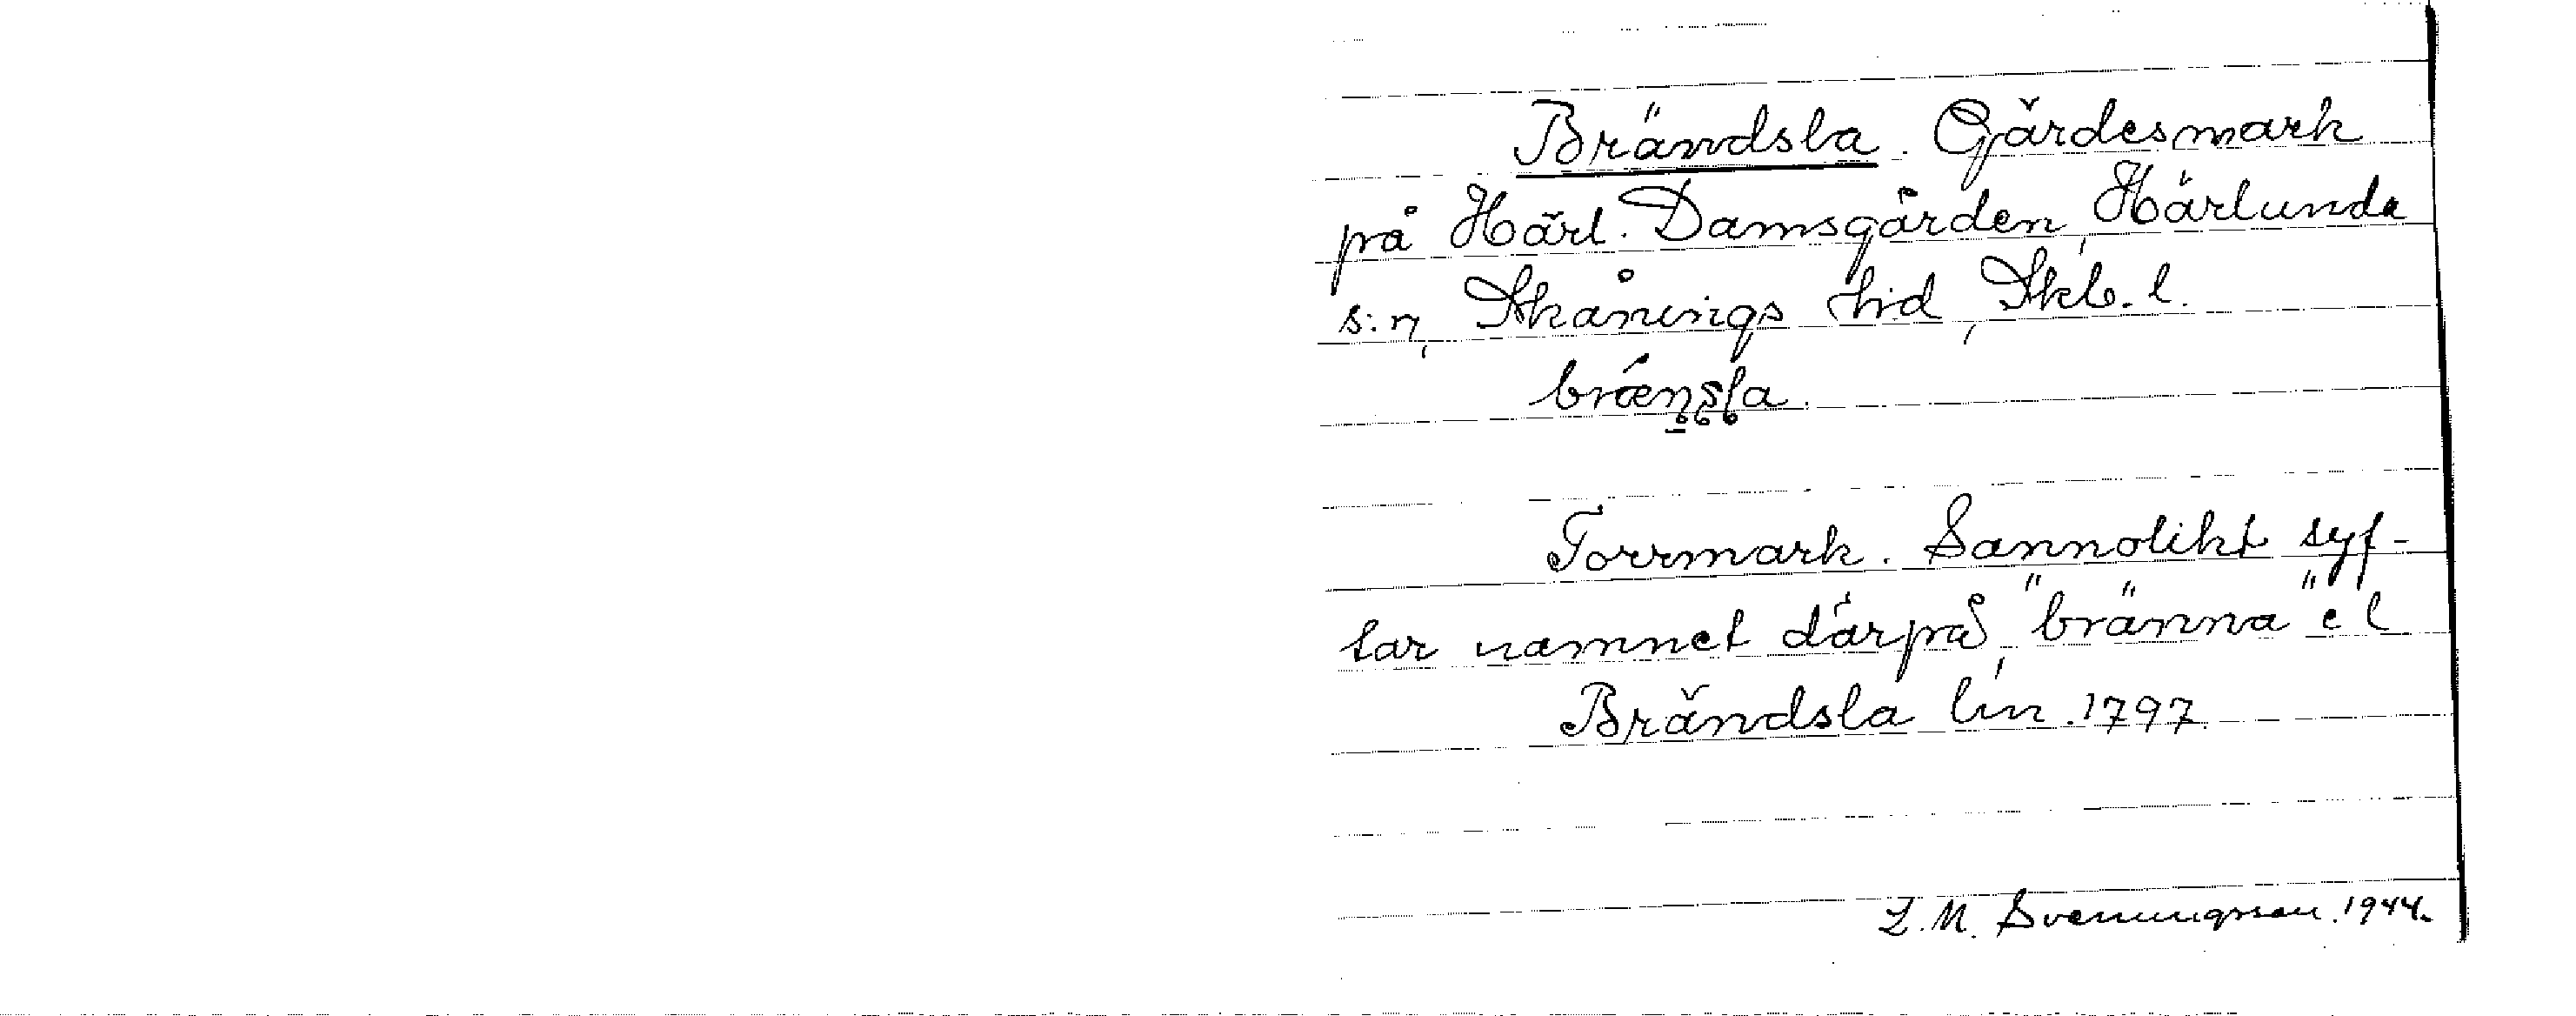 Brändsla. Gärdesmark
på Härl. Damsgården, Härlunda
s:n, Skånings hd, Skb. l.
brænsla.
Torrmark. Sannolikt syf-
tar namnet därpå, "bränna" el
Brändsla lin. 1797.
L. M. Svenungsson. 1944.